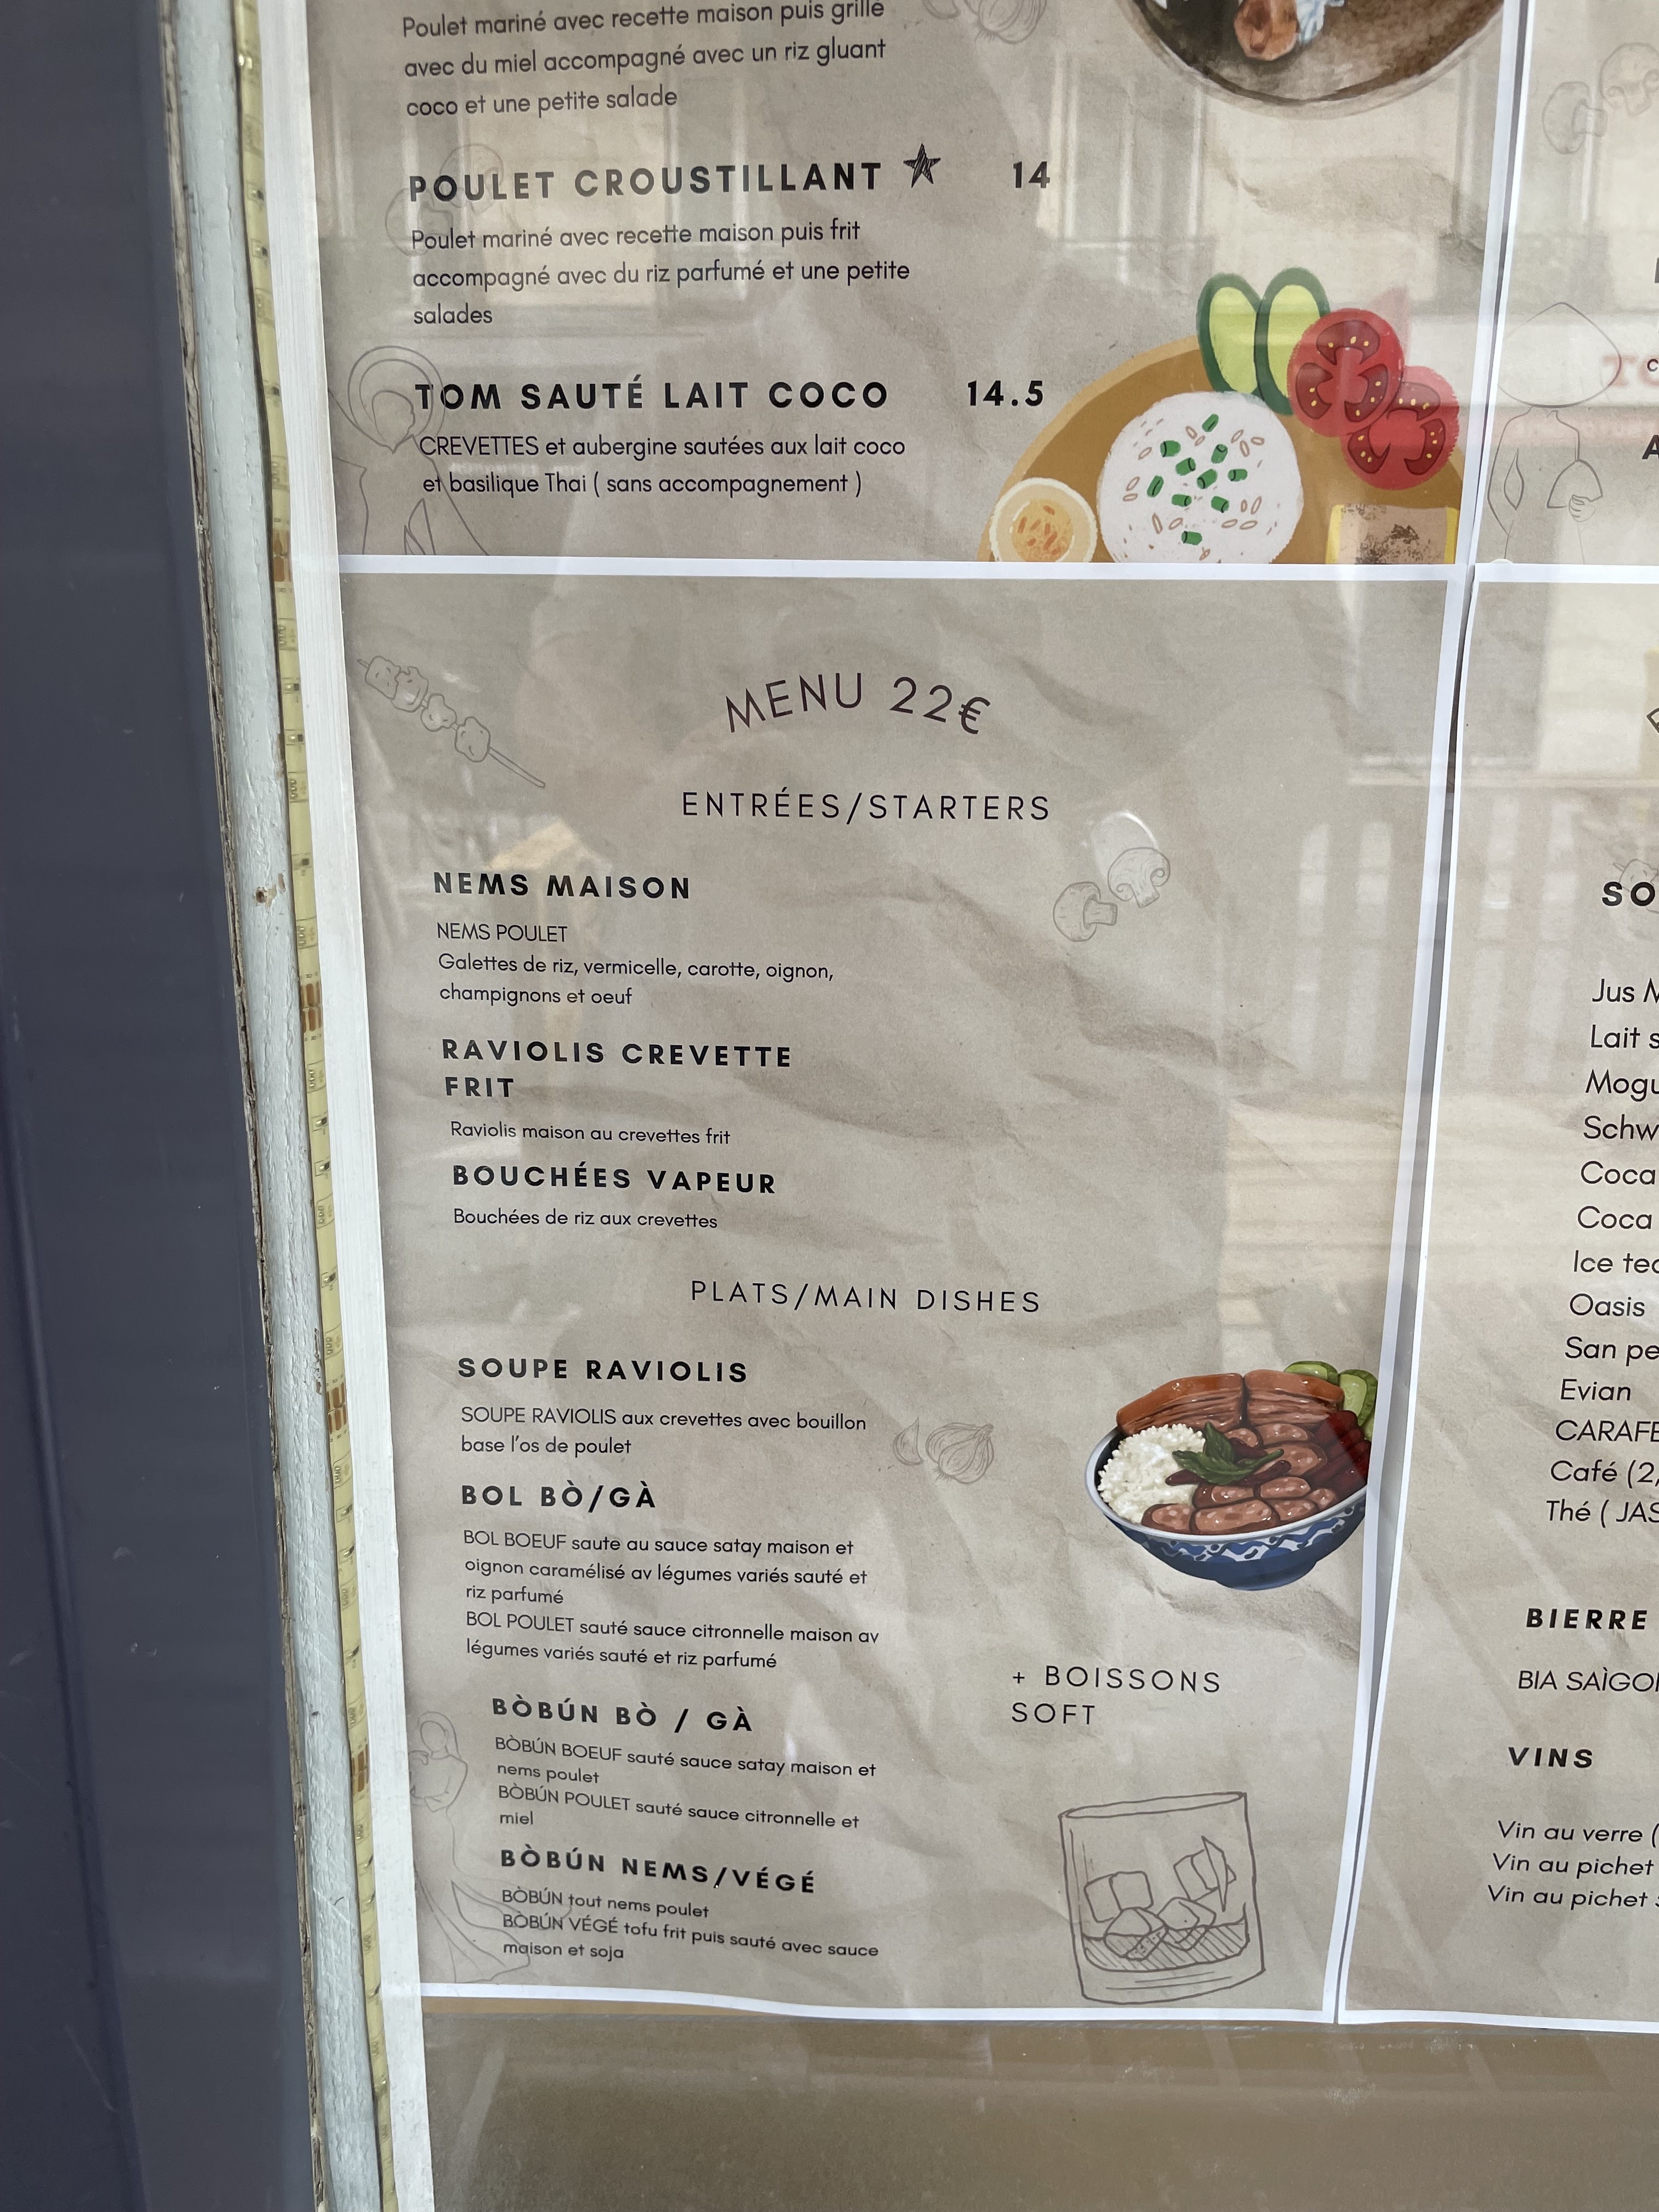 Poulet mariné avec recette maison puis grillé
avec du miel accompagné avec un riz gluant
coco et une petite salade
POULET CROUSTILLANT 14
Poulet mariné avec recette maison puis frit
accompagné avec du riz parfumé et une petite
salades
TOM SAUTÉ LAIT COCO 14.5
CREVETTES et aubergine sautées aux lait coco
et basilique Thai ( sans accompagnement )
MENU 22€
ENTRÉES/STARTERS
NEMS MAISON
NEMS POULET
Galettes de riz, vermicelle, carotte, oignon,
champignons et oeuf
RAVIOLIS CREVETTE
FRIT
Raviolis maison au crevettes frit
BOUCHÉES VAPEUR
Bouchées de riz aux crevettes
PLATS/MAIN DISHES
SOUPE RAVIOLIS
SOUPE RAVIOLIS aux crevettes avec bouillon
base l'os de poulet
BOL BÒ/GÀ
BOL BOEUF saute au sauce satay maison et
oignon caramélisé av légumes variés sauté et
riz parfumé
BOL POULET sauté sauce citronnelle maison av
légumes variés sauté et riz parfumé
BÒBÚN BÒ / GÀ
BÒBÚN BOEUF sauté sauce satay maison et
nems poulet
BÒBÚN POULET sauté sauce citronnelle et
miel
BÒBÚN NEMS/VÉGÉ
BÒBÚN tout nems poulet
BÒBÚN VÉGÉ tofu frit puis sauté avec sauce
maison et soja
+ BOISSONS
SOFT
Jus
Lait
Coca
Coca
Ice
Oasis
San
Evian
Café (2,
Thé (
BIERRE
BIA
VINS
Vin au verre (
Vin au pichet
Vin au pichet